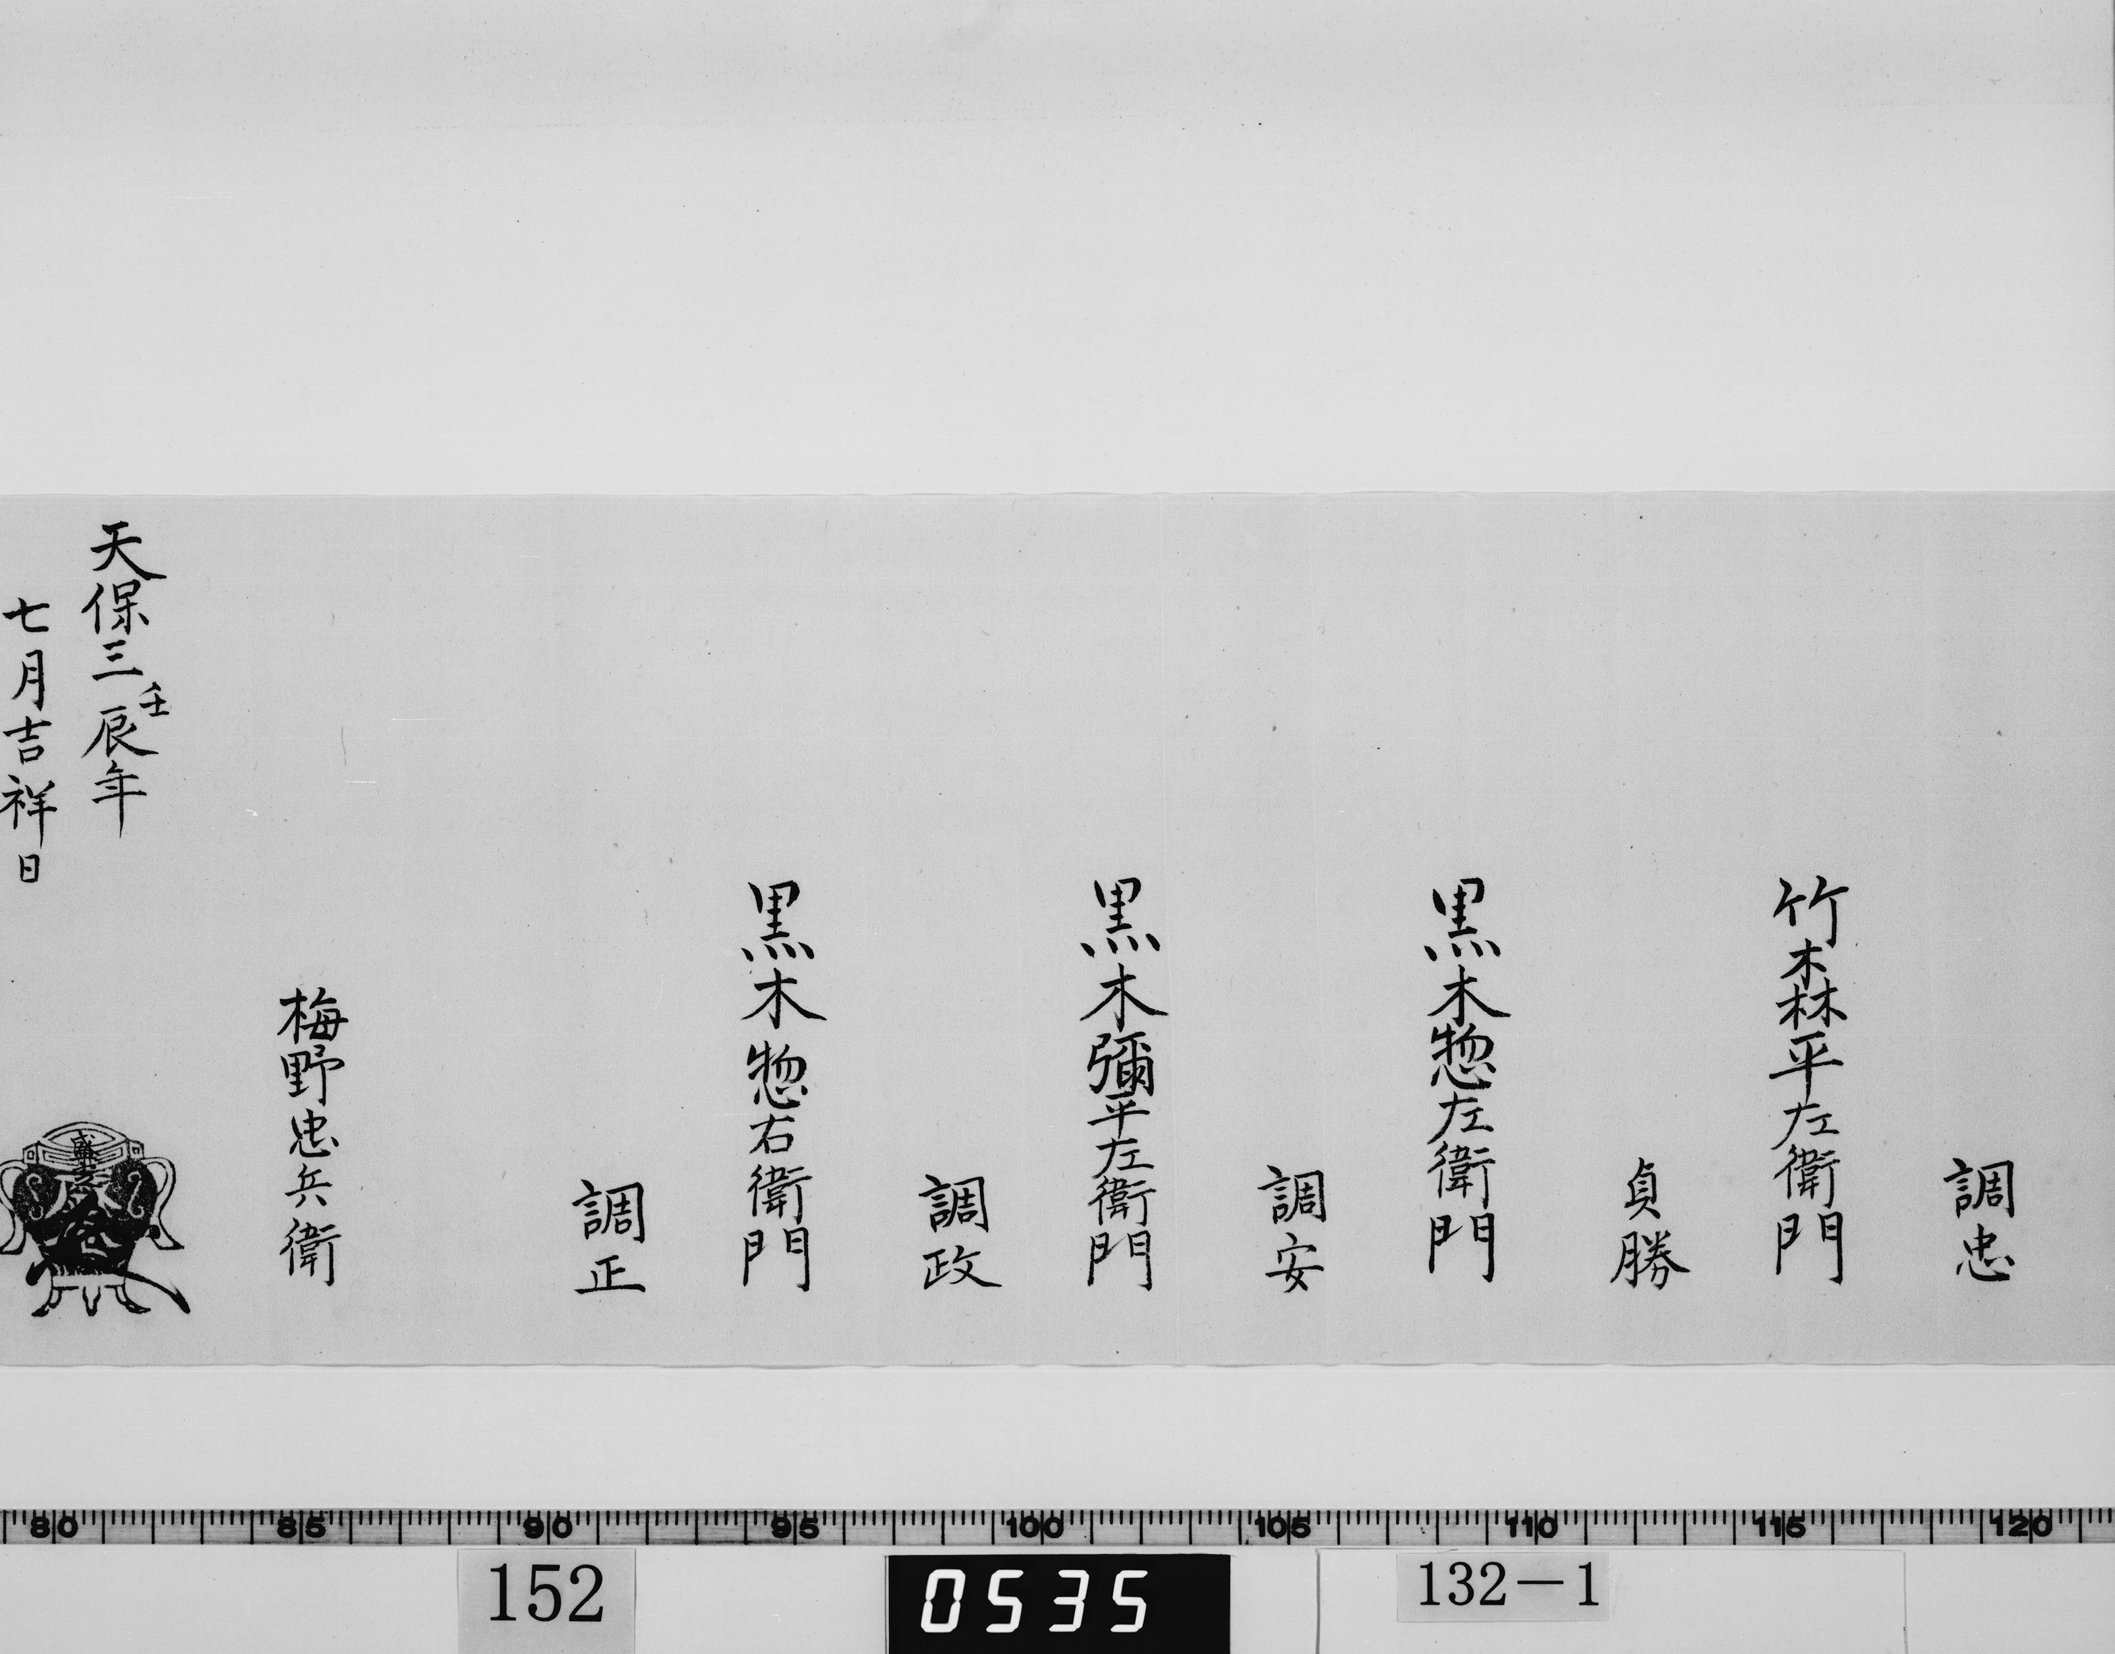 調忠
竹森平左衛門
貞勝
黒木惣左衛門
調安
黒木彌平左衛門
調政
黒木惣右衛門
調正
梅野忠兵衛
天保三壬辰年
七月吉祥日
80 85 90 95 100 105 110 115 120
152
0535
132-1